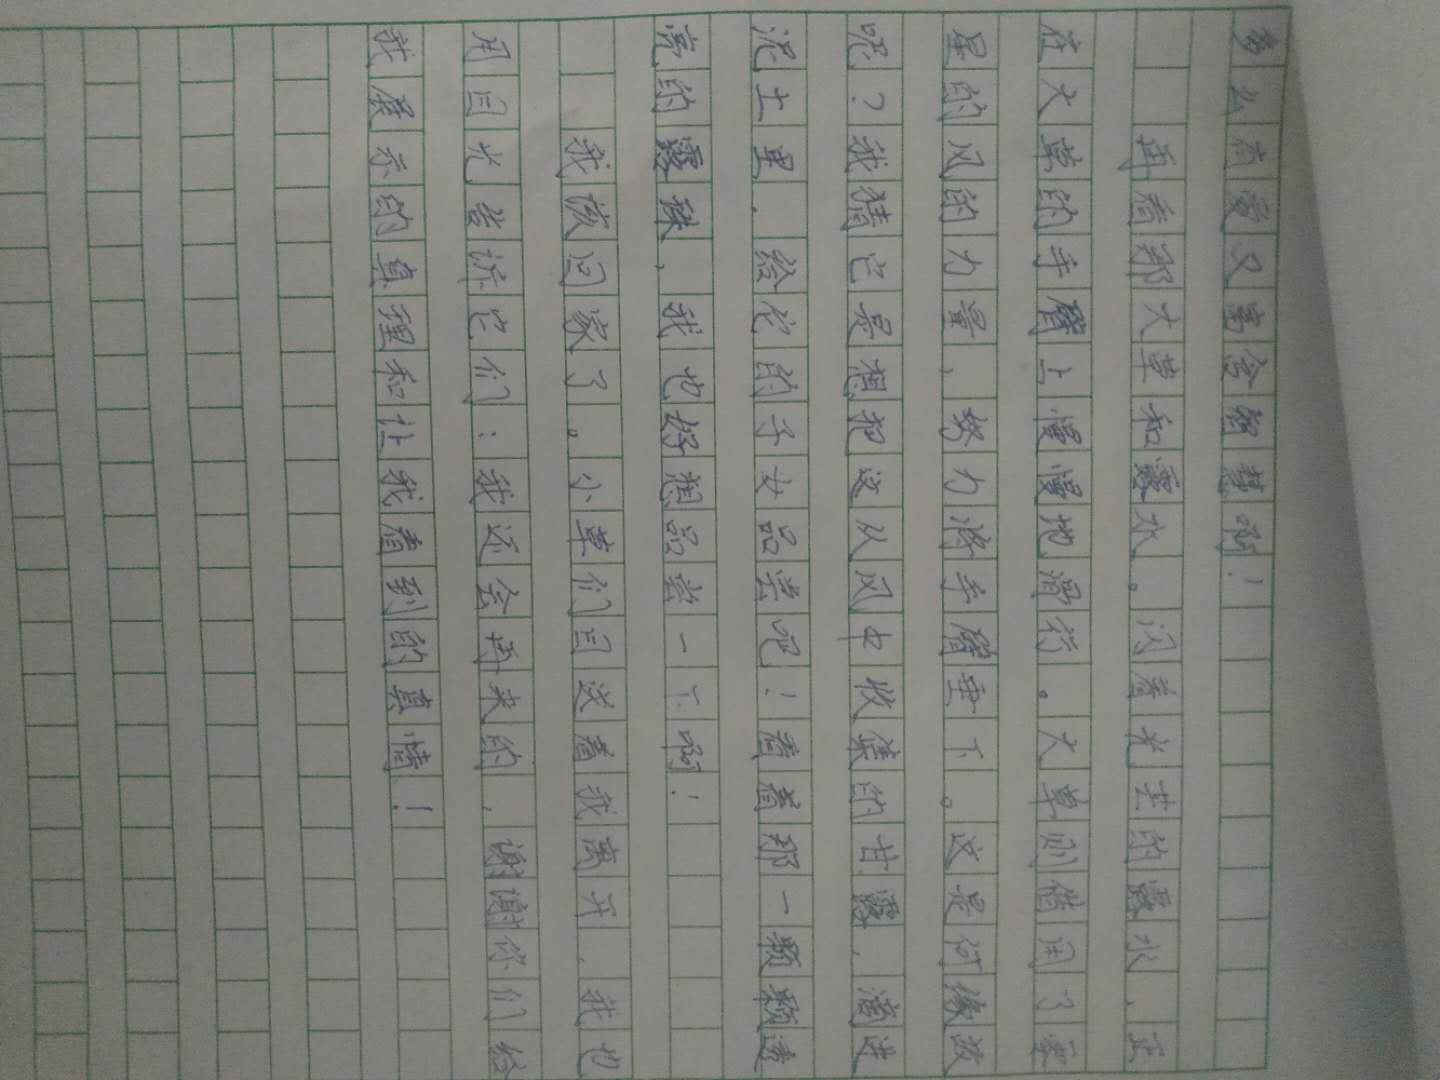 多么有爱又富含智慧啊！
再看那大草和露水。闪着光芒的露水，正
在大草的手臂上慢慢地滑行。大草则借用了寒
星的风的力量，努力将手臂垂下。这是何缘故
呢？我猜它是想把这从风中收集的甘露，滴进
泥土里，给它的子女品尝吧！看着那一颗颗透
亮的露珠，我也好想品尝一下啊！
我该回家了。小草们目送着我离开，我也
用目光告诉它们：我还会再来的，谢谢你们给
我展示的真理和让我看到的真情！